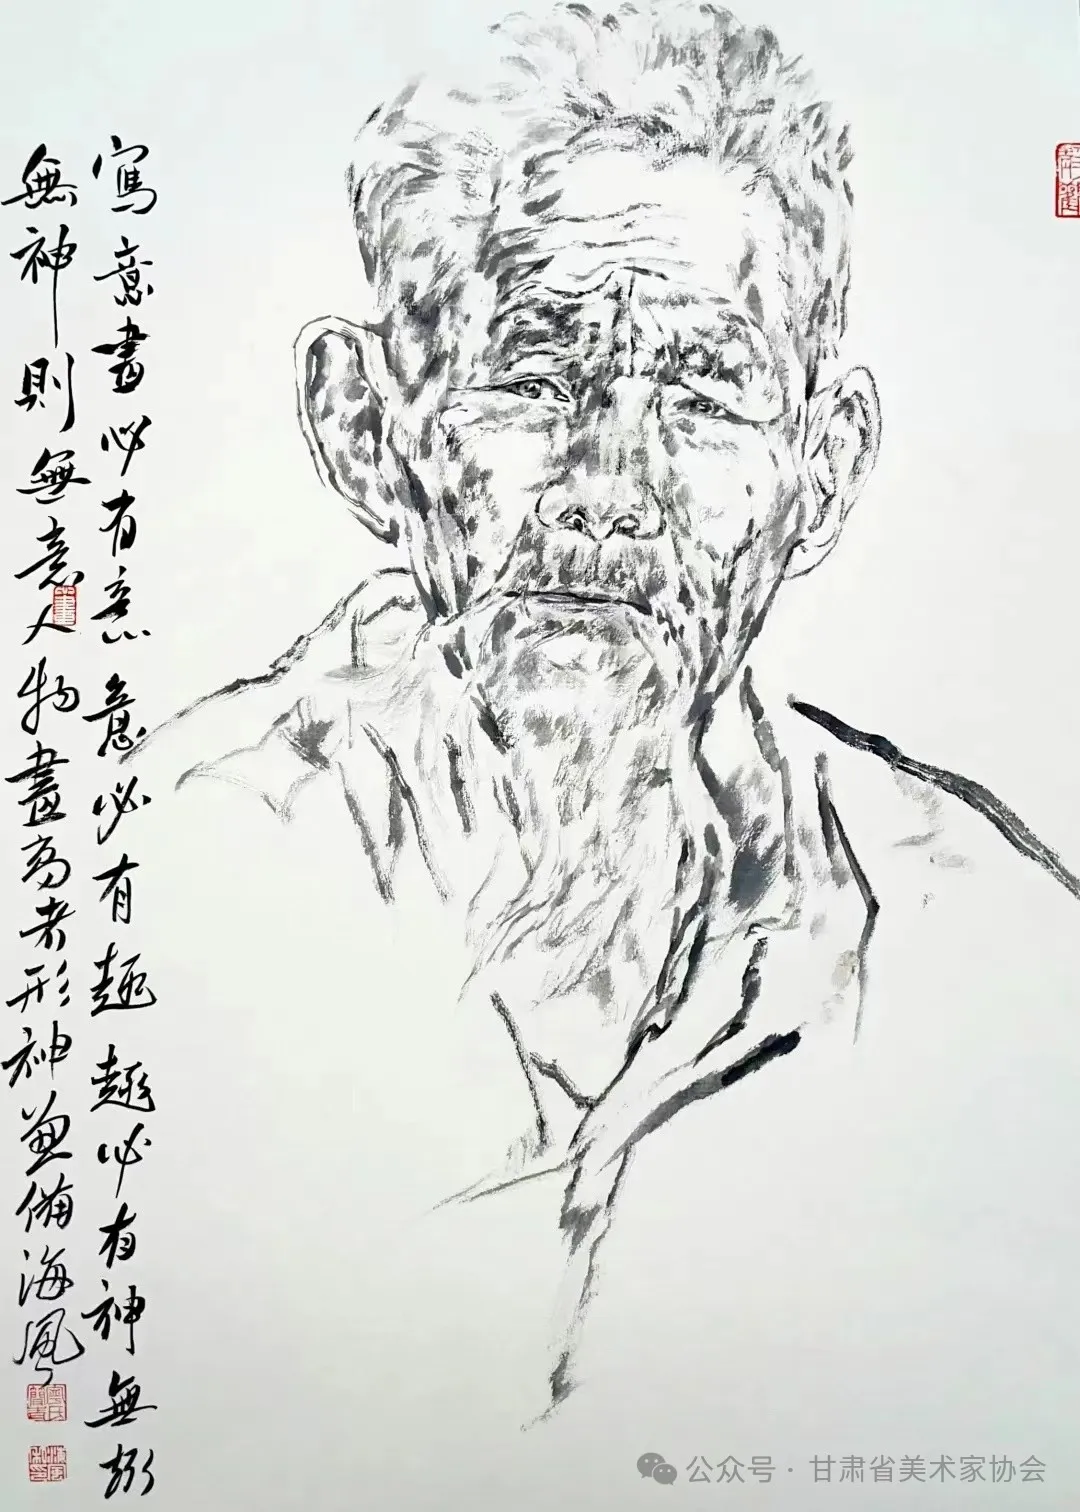 寫意畫必有意意必有趣趣必有神無
無神則無意人物畫高者形神兼備海風
公众号 · 甘肃省美术家协会